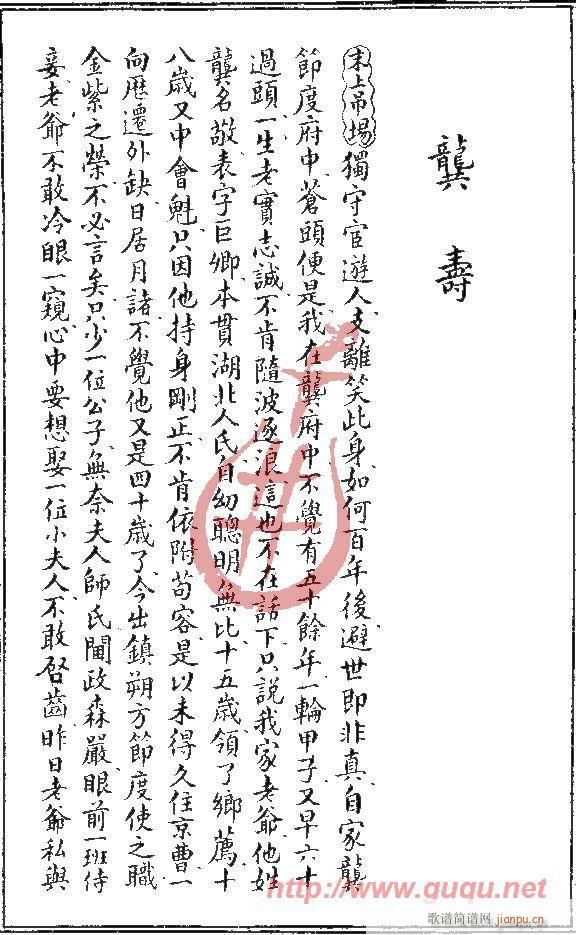 龔壽
末上吊場獨守宦遊人支離笑此身如何百年後避世即非真自家龔
節度府中蒼頭便是我在龔府中不覺有五十餘年一輪甲子又早六十
過頭一生老實志誠不肯隨波逐浪這也不在話下只說我家老爺他姓
龔名敬表字巨卿本貫湖北人氏自幼聰明無比十五歲領了鄉薦十
八歲又中會魁只因他持身剛正不肯依附苟容是以未得久住京曹一
向歷遷外缺日居月諸不覺他又是四十歲了今出鎮朔方節度使之職
金紫之榮不必言矣只少一位公子無奈夫人師氏閫政森嚴眼前一班侍
妾老爺不敢冷眼一窺心中要想娶一位小夫人不敢啓齒昨日老爺私與
http://www.ququ.net
歌谱简谱网
jianpu.cn